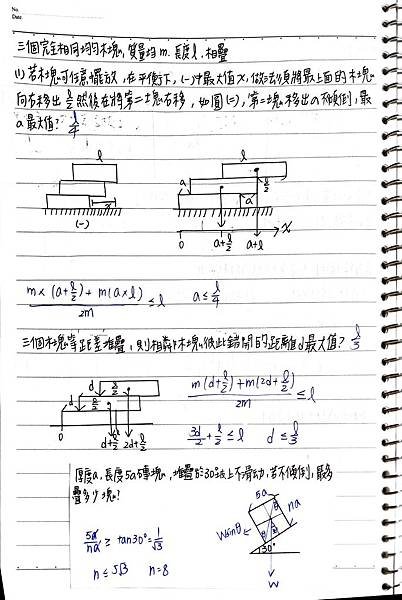 No.
Date
三個完全相同均勻木塊, 質量均 m. 長度 l. 相疊
(1) 若木塊可任意擺放, 在平衡下, (一)中最大值 x, 做法為將最上面的木塊
向右移出 l/2 然後在將第二塊右移, 如圖(二), 第二塊移出 a 不傾倒, 最
a 最大值? l/4
l
l
a
l/2
a
x
(一)
0
a+l/2
a+l
x
m×(a+l/2)+m(a×l)/2m ≤ l
a ≤ l/4
三個木塊等距差堆疊, 則相鄰木塊彼此錯開的距離 d 最大值? l/3
d
l/2
d
l/2
0
d+l/2
2d+l/2
m(d+l/2)+m(2d+l/2)/2m ≤ l
3d/2+l/2 ≤ l
d ≤ l/3
厚度a, 長度5a磚塊, 堆疊於30°斜面上不滑動, 若不傾倒, 最多
疊多少塊?
5a
na
θ
Wsinθ
θ
30°
W
5a/na ≥ tan30°=1/√3
n ≤ 5√3
n=8